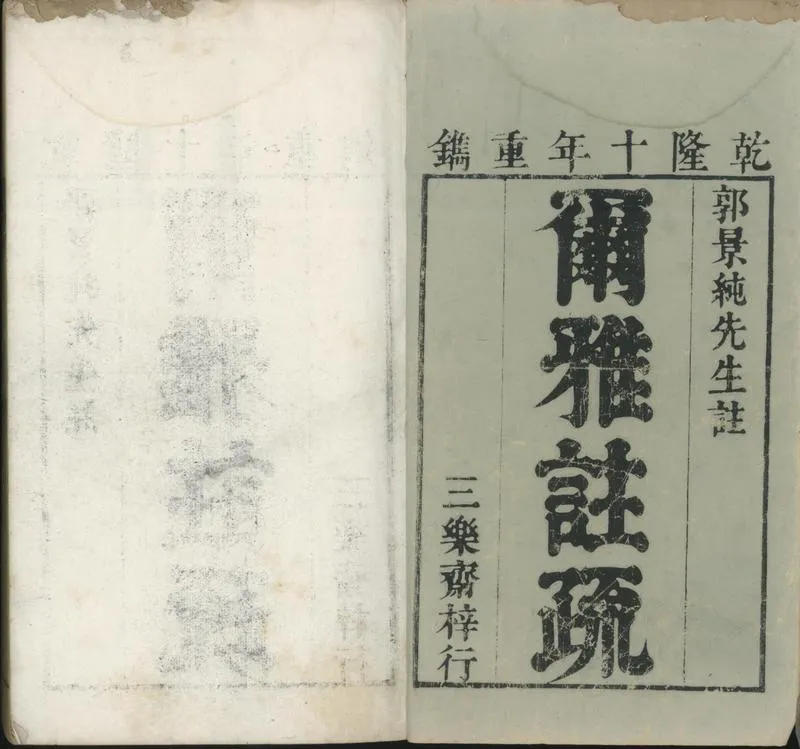 乾隆十年重鐫
郭景純先生註
爾雅註疏
三樂齋梓行